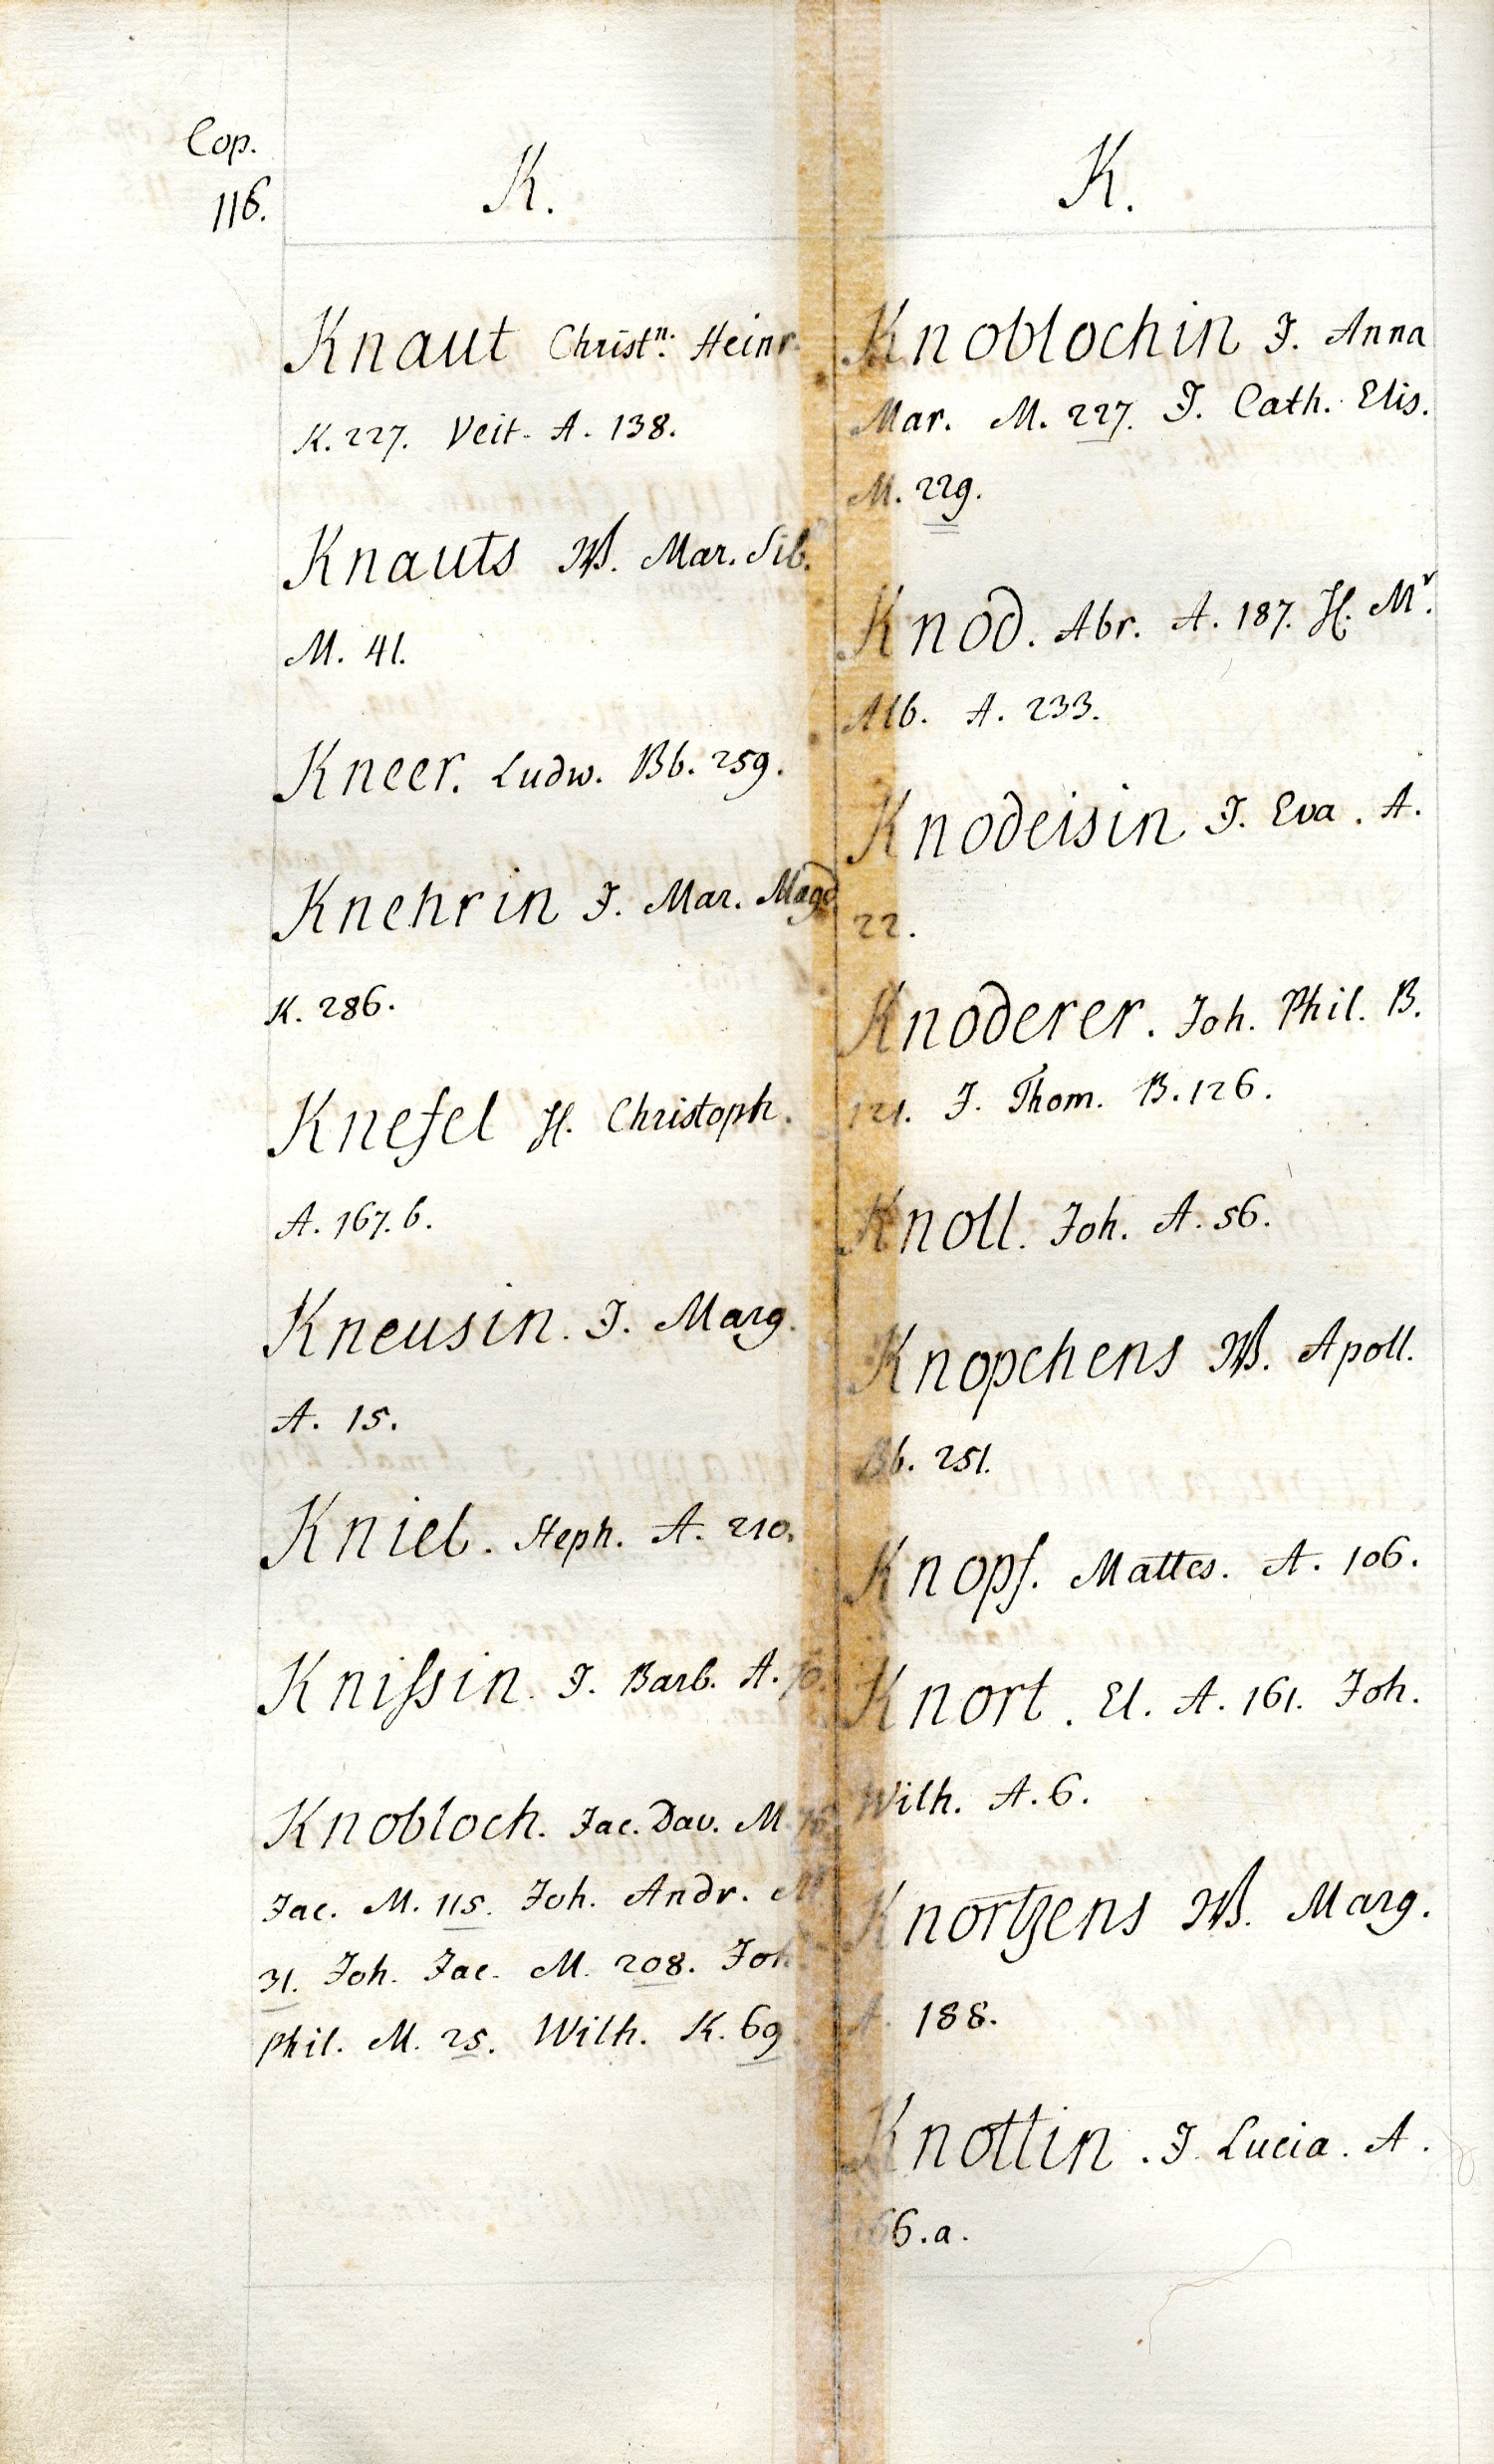 Cop.
116.
K.
Knaut Christn: Heinr.
K. 227. Veit. A. 138.
Knauts W. Mar. Sib.
M. 41.
Kneer. Ludw. Bb. 259.
Knehrin J. Mar. Magd
K. 286.
Knefel H. Christoph.
A. 167. b.
Kneusin. J. Marg.
A. 15.
Kniel. Steph. A. 210.
Knißin. J. Barb. A. 70.
Knobloch. Jac. Dav. M. 76.
Jac. M. 115. Joh. Andr. M
31. Joh. Jac. M. 208. Joh.
Phil. M. 25. Wilh. K. 69
K.
Knoblochin J. Anna
Mar. M. 227. J. Cath. Elis.
M. 229.
Knod. Abr. A. 187. H. Mr.
Alb. A. 233.
Knodeisin J. Eva. A.
22.
Knoderer. Joh. Phil. B.
121. J. Thom. B. 126.
Knoll. Joh. A. 56.
Knopchens W. Apoll.
Bb. 251.
Knopf. Mattes. A. 106.
Knort. El. A. 161. Joh.
Wilh. A. 6.
Knortzens W. Marg.
A. 188.
Knottin. J. Lucia. A.
66. a.